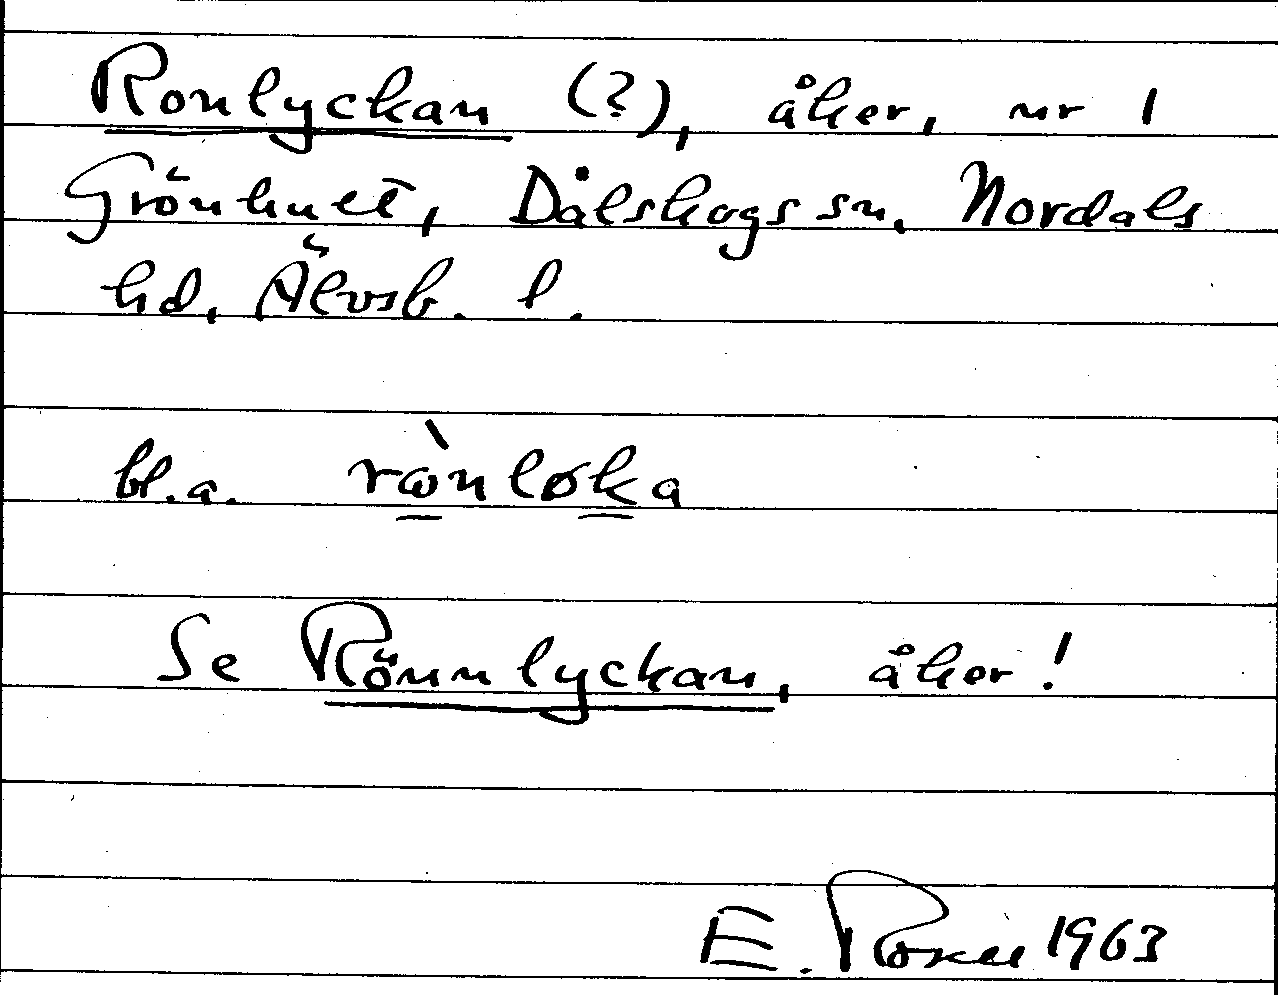 Ronlyckan (?), åker, nr 1
Grönhult, Dalskogs sn, Nordals
hd, Älvsb. l.
bl.a. rὼnløka
Se Rönnlyckan, åker!
E. Rosell 1963